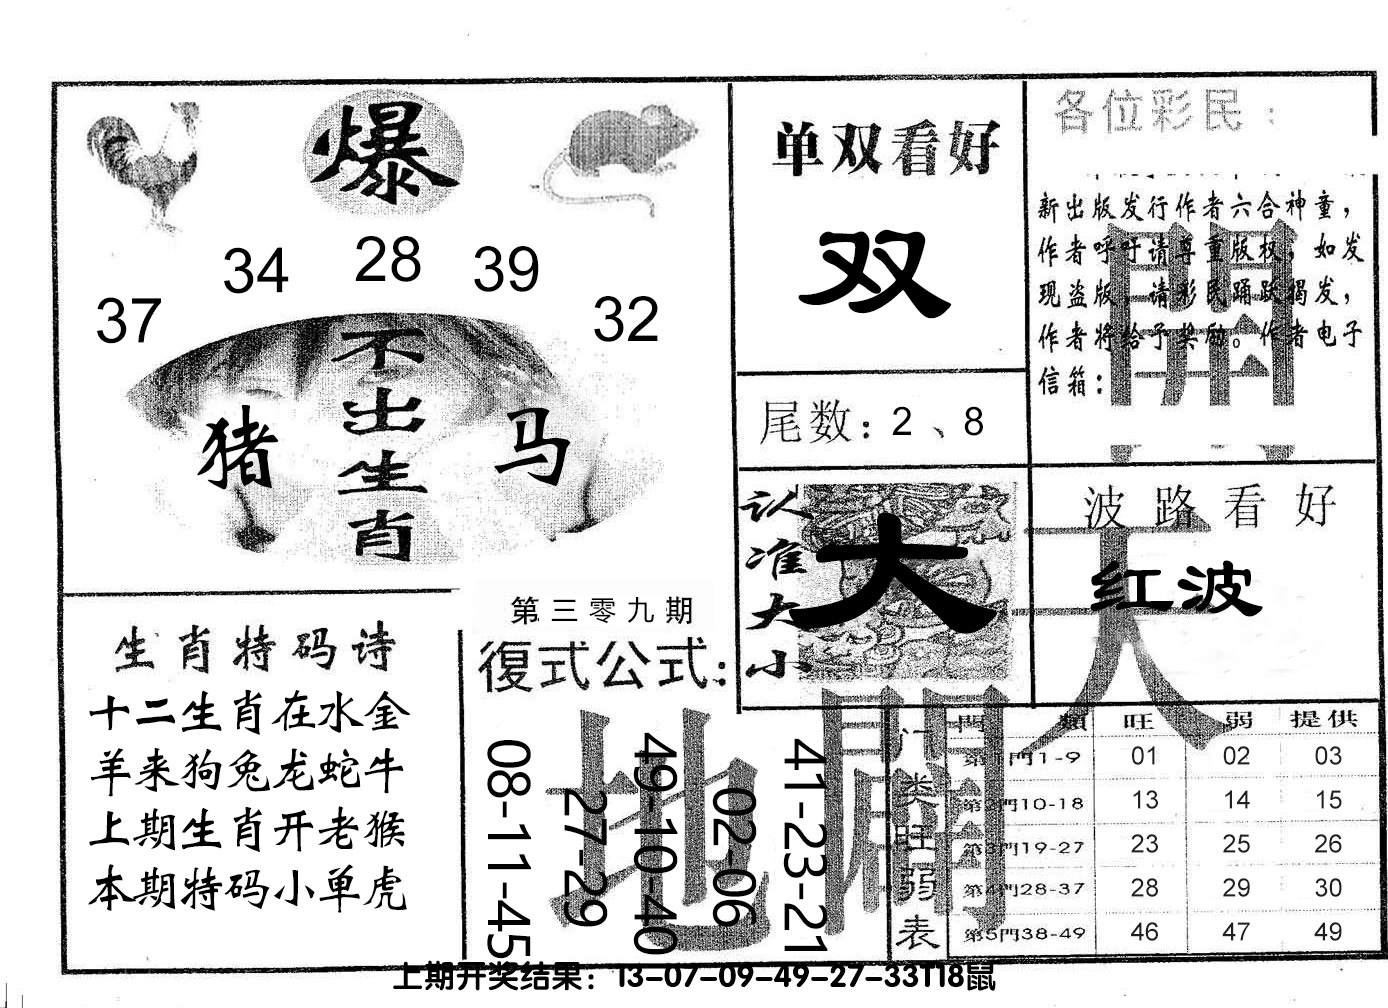 爆
34 28 39
37 32
不出生肖
猪 马
单双看好
双
尾数：2、8
各位彩民：
新出版发行作者六合神童，
作者呼吁请尊重版权，如发
现盗版，请彩民踊跃揭发，
作者将给予奖励。作者电子
信箱：
開
认准大小
大
波路看好
红波
天
生肖特码诗
十二生肖在水金
羊来狗兔龙蛇牛
上期生肖开老猴
本期特码小单虎
第三零九期
復式公式：
08-11-45
27-29
49-10-40
02-06
41-23-21
地
門类旺弱表
門類 旺 弱 提供
第1門1-9 01 02 03
第2門10-18 13 14 15
第3門19-27 23 25 26
第4門28-37 28 29 30
第5門38-49 46 47 49
上期开奖结果：13-07-09-49-27-33T18鼠